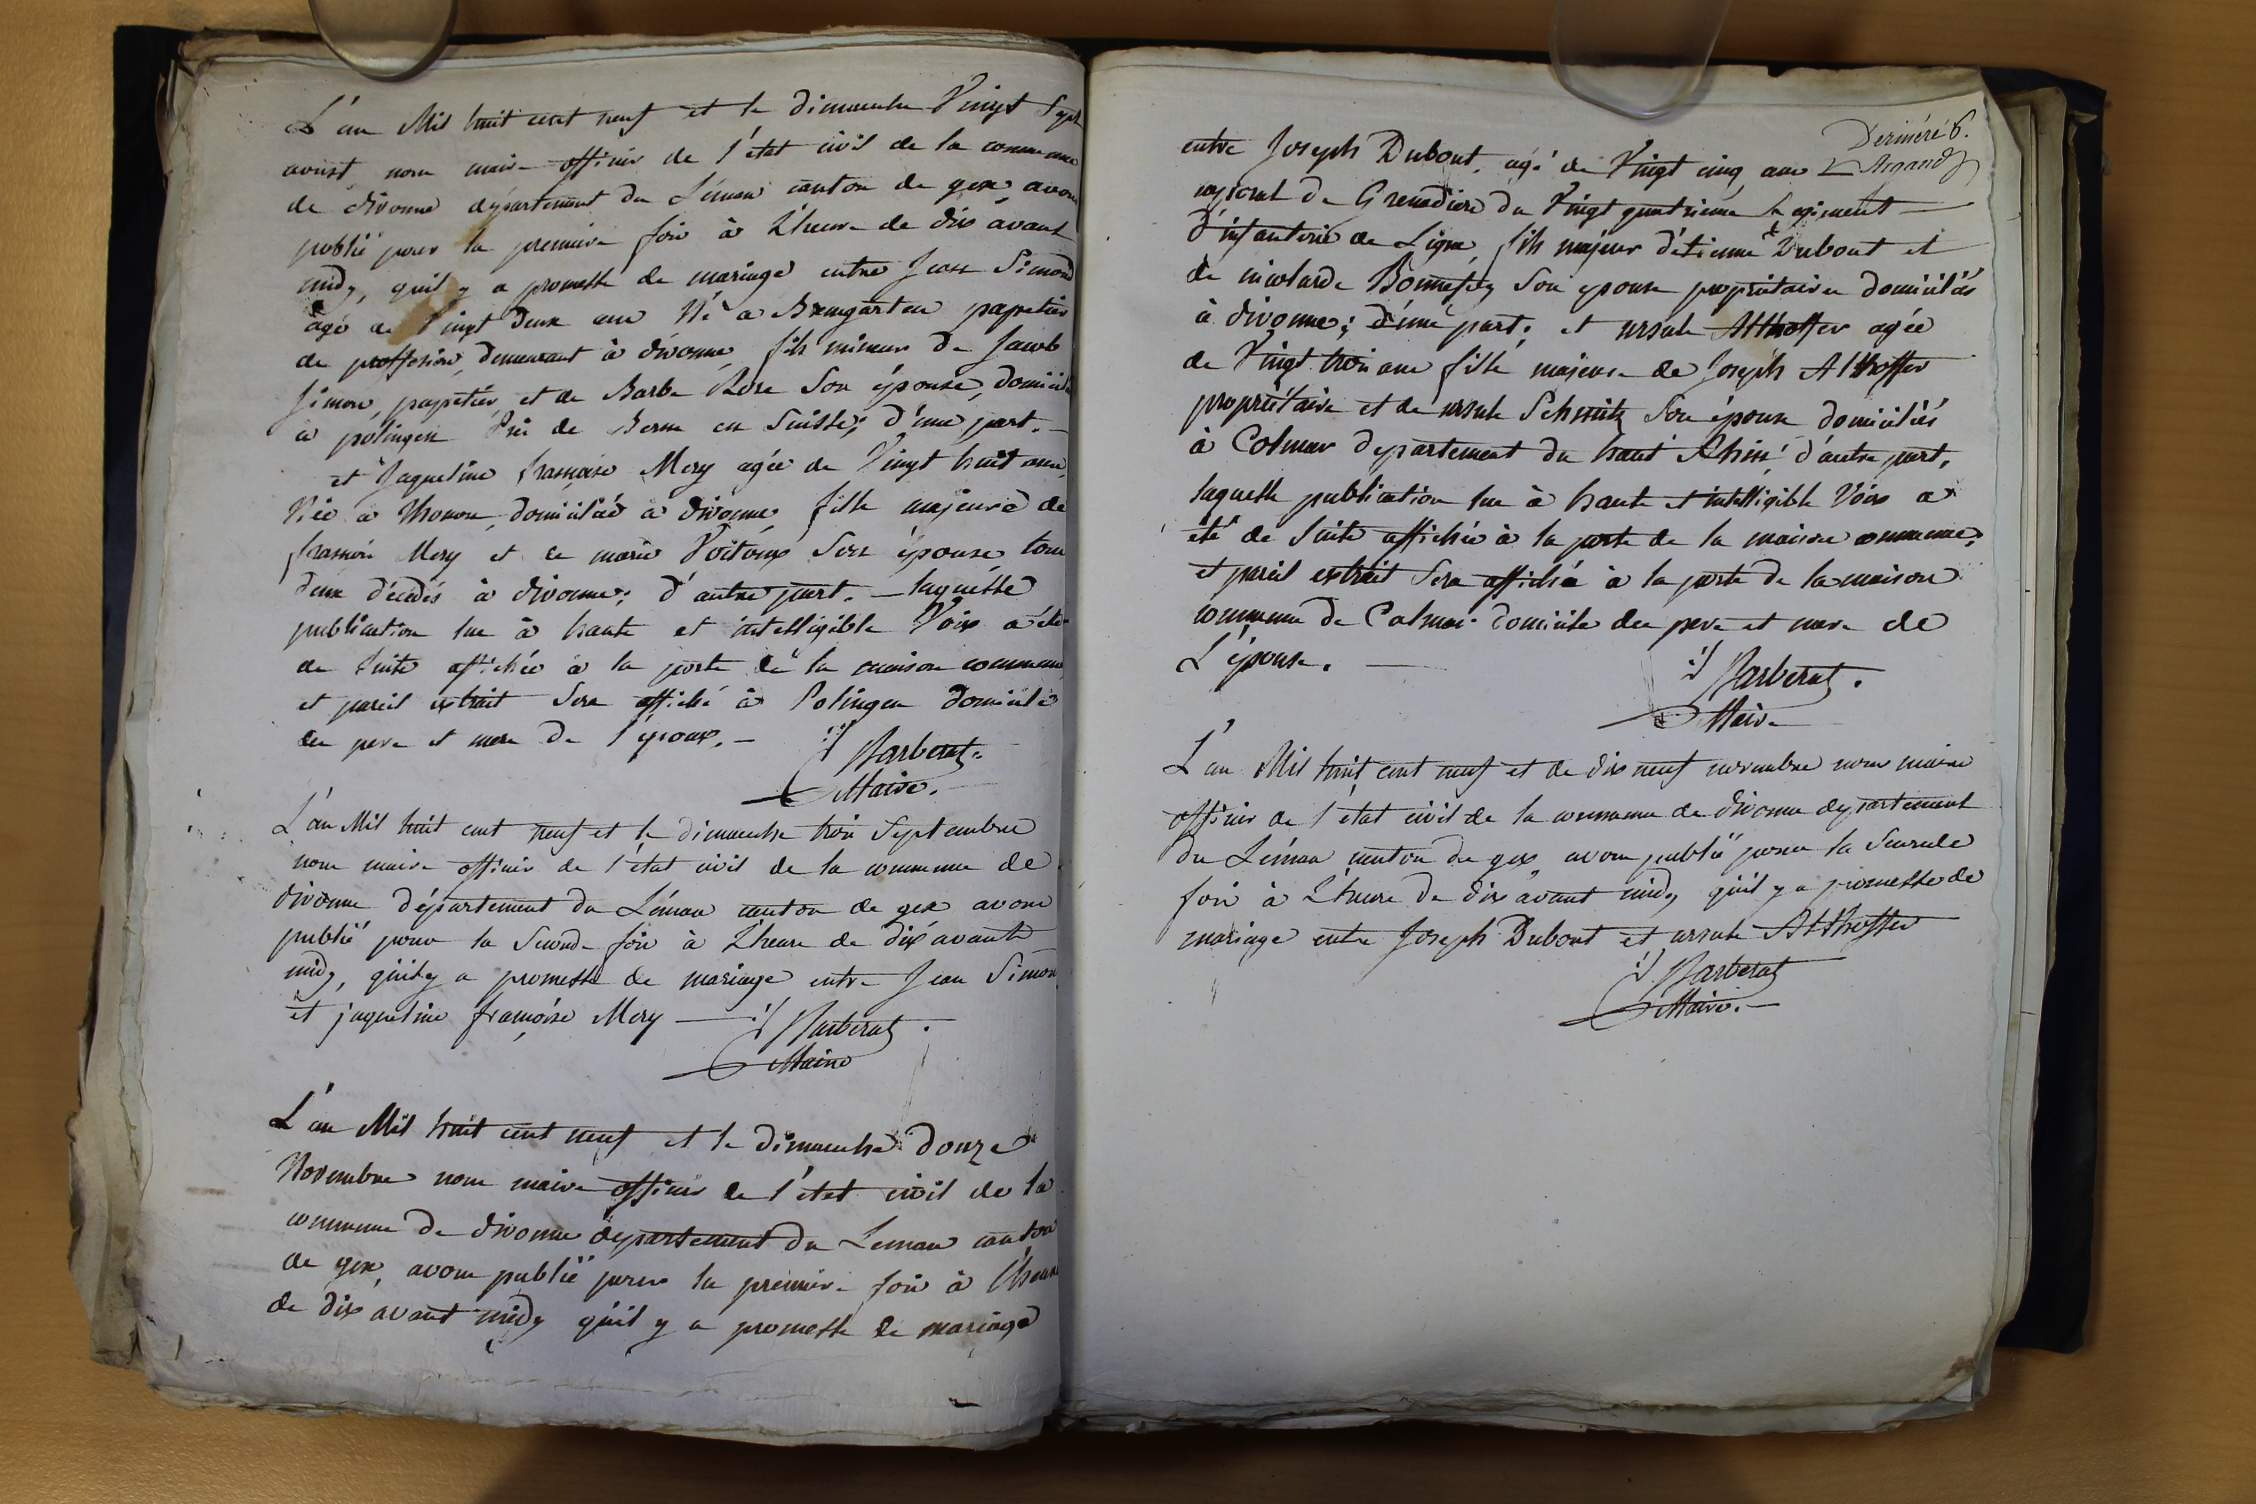 L'an Mil huit cent neuf et le dimanche Vingt Sept
aoust nous maire officier de l'état civil de la commune
de divonne département du Léman canton de gex avons
publié pour la premiere fois à L'heure de dix avant
midy, quil y a promesse de mariage entre Jean Simond
agé de Vingt deux ans Né a Bremgarten papetier
de proffession, demeurant à divonne, fils mineur de Jacob
Simon, papetier, et de Barbe Rose Son épouse, domiciliés
a polingen Près de Berne en Suisse; d'une part. —
et Jaqueline françoise Mery agée de Vingt huit ans,
Née a Thonon, domiciliée a divonne, fille majeure de
françois Mery et de marie Voitoux Son épouse, tous
deux décédés à divonne; d'autre part. — laquelle
publication lue à haute et intelligible Voix a été
de Suite affichée a la porte de la maison commune,
et pareil extrait Sera affiché à Polingen domicile
des pere et mere de l'époux. —
Barberat.
Maire.
L'an Mil huit cent neuf et le dimanche trois Septembre
nous maire officier de l'état civil de la commune de
divonne département du Léman canton de gex avons
publié pour la Seconde fois à L'heure de dix avant
midy, quil y a promesse de mariage entre Jean Simon
et jaqueline françoise Mery — Barberat.
Maire
L'an Mil huit cent neuf et le dimanche douze
Novembre nous maire officier de l'état civil de la
commune de divonne département du Leman canton
de gex, avons publié pour la premiere fois à l'heure
de dix avant midy qu'il y a promesse de mariage
6.
Argand
entre Joseph Dubout, agé de Vingt cinq ans
caporal de Grenadiers du Vingt quatrieme Regiment —
d'infanterie de Ligne, fils majeur d'étienne Dubout et
de nicolarde Bonnefoy Son epouse propriétaires domiciliés
à divonne; d'une part; et ursule Althoffer agée
de Vingt trois ans fille majeure de Joseph Althoffer
propriétaire et de ursule Schmitz Son épouse domiciliés
à Colmar departement du haut Rhin; d'autre part,
laquelle publication lue à haute et intelligible Voix a
été de Suite affichée à la porte de la maison commune,
et pareil extrait Sera affiché à la porte de la maison
commune de Colmar domicile des pere et mere de
L'épouse. —
Barberat.
Maire
L'an Mil huit cent neuf et de dix neuf novembre nous maire
officier de l'état civil de la commune de divonne departement
du Léman canton de gex, avons publié pour la Seconde
fois à L'heure de dix avant midy qu'il y a promesse de
mariage entre Joseph Dubout et ursule Althoffer
Barberat
Maire. —